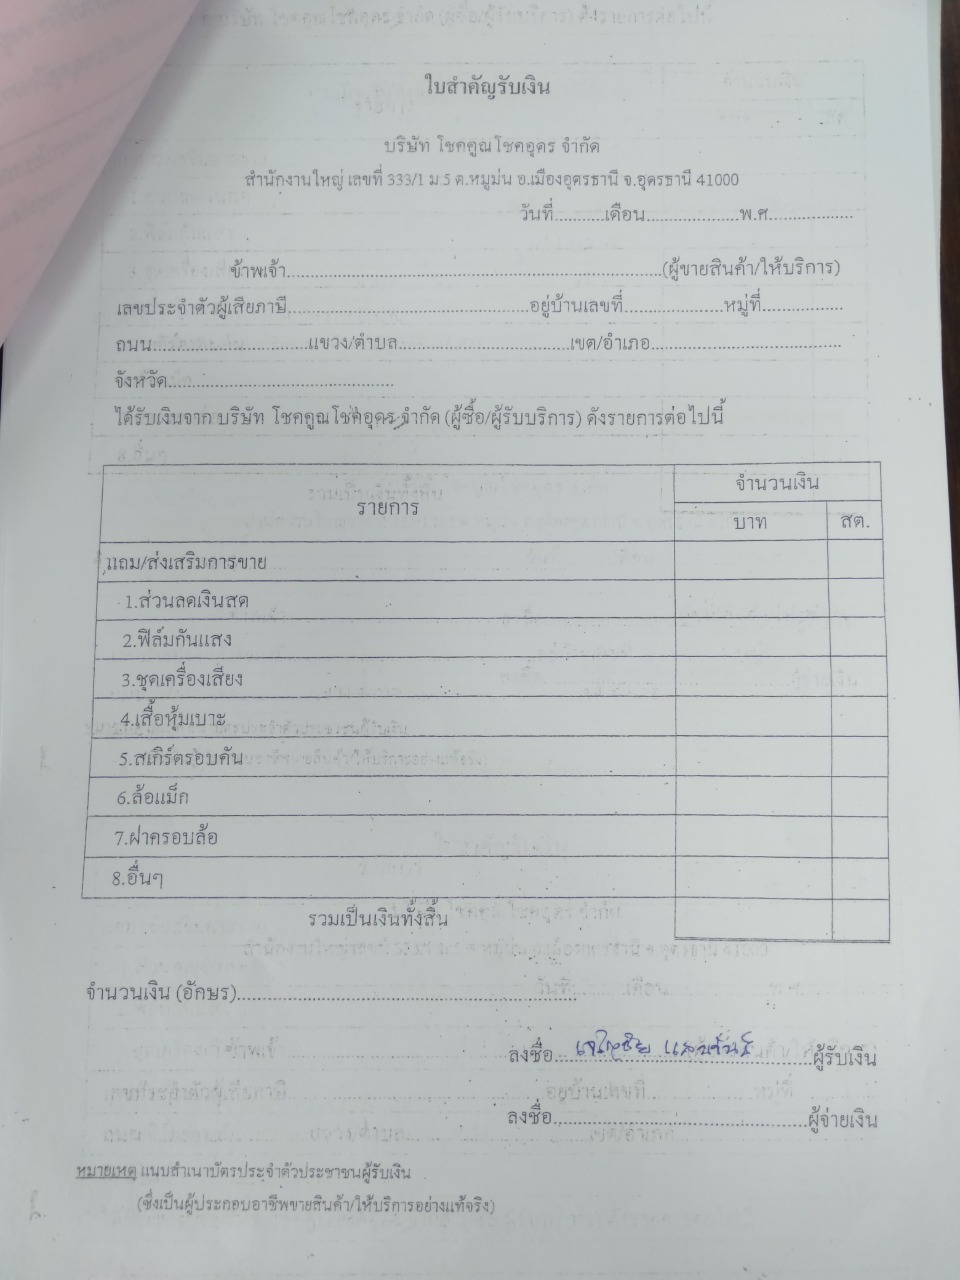 ใบสำคัญรับเงิน
บริษัท โชคคูณโชคอุดร จำกัด
สำนักงานใหญ่ เลขที่ 333/1 ม.5 ต.หมูม่น อ.เมืองอุดรธานี จ.อุดรธานี 41000
วันที่...........เดือน....................พ.ศ..................
ข้าพเจ้า................................................................................(ผู้ขายสินค้า/ให้บริการ)
เลขประจำตัวผู้เสียภาษี....................................................อยู่บ้านเลขที่.....................หมู่ที่.................
ถนน.................................แขวง/ตำบล.....................................เขต/อำเภอ.........................................
จังหวัด................................................
ได้รับเงินจาก บริษัท โชคคูณโชคอุดร จำกัด (ผู้ซื้อ/ผู้รับบริการ) ดังรายการต่อไปนี้
รายการ จำนวนเงิน
บาท สต.
แถม/ส่งเสริมการขาย
1.ส่วนลดเงินสด
2.ฟิล์มกันแสง
3.ชุดเครื่องเสียง
4.เสื้อหุ้มเบาะ
5.สเกิร์ตรอบคัน
6.ล้อแม็ก
7.ฝาครอบล้อ
8.อื่นๆ
รวมเป็นเงินทั้งสิ้น
จำนวนเงิน (อักษร)........................................................................
ลงชื่อ.......................................................ผู้รับเงิน
ลงชื่อ.......................................................ผู้จ่ายเงิน
หมายเหตุ แนบสำเนาบัตรประจำตัวประชาชนผู้รับเงิน
(ซึ่งเป็นผู้ประกอบอาชีพขายสินค้า/ให้บริการอย่างแท้จริง)